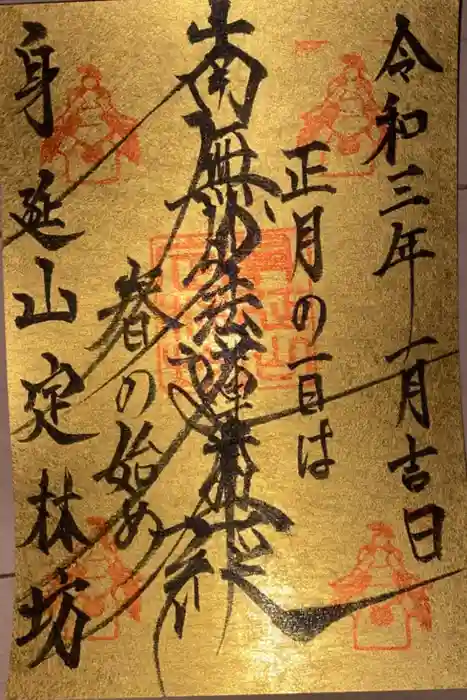 令和三年一月吉日
正月の一日は
南無妙法蓮華経
春の始め
身延山定林坊